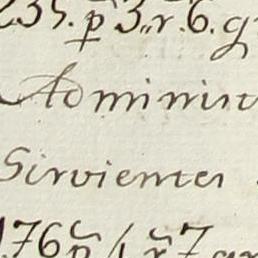 235. p̃ 3,, r̃. 6. g
Adminis
Sirvientes
.76 p̃ / r̃ 7 gr